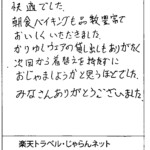 快適でした。
朝食バイキングも品数豊富で
おいしくいただきました。
かりゆしウェアの貸し出しもありがたく
次回から着替えを持たずに
おじゃましようかと思うほどでした。
みなさんありがとうございました。
楽天トラベル・じゃらんネット